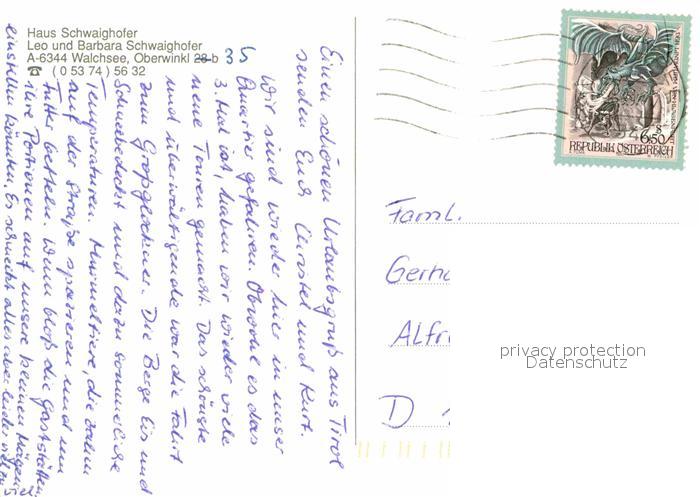 Haus Schwaighofer
Leo und Barbara Schwaighofer
A-6344 Walchsee, Oberwinkl 28 b 35
☎ ( 0 53 74 ) 56 32
Einen schönen Urlaubsgruß aus Tirol
senden Euch Christel und Kurt.
Wir sind wieder hier in unser
Quartier gefahren. Obwohl es das
3. Mal ist, haben wir wieder viele
neue Touren gemacht. Das schönste
und überwältigende war die Fahrt
zum Großglockner. Die Berge Eis und
Schneebedeckt und dazu sommerliche
Temperaturen. Murmeltiere, die
auf der Straße spazieren und um
Futter betteln. Wenn bloß die Gaststätten
ihre Portionen auf unsere kleinen Mägen
einstellen könnten. Es schmeckt alles aber leider viel zu viel.
6.50
REPUBLIK ÖSTERREICH
Faml.
Gerh
Alfr
D
privacy protection
Datenschutz